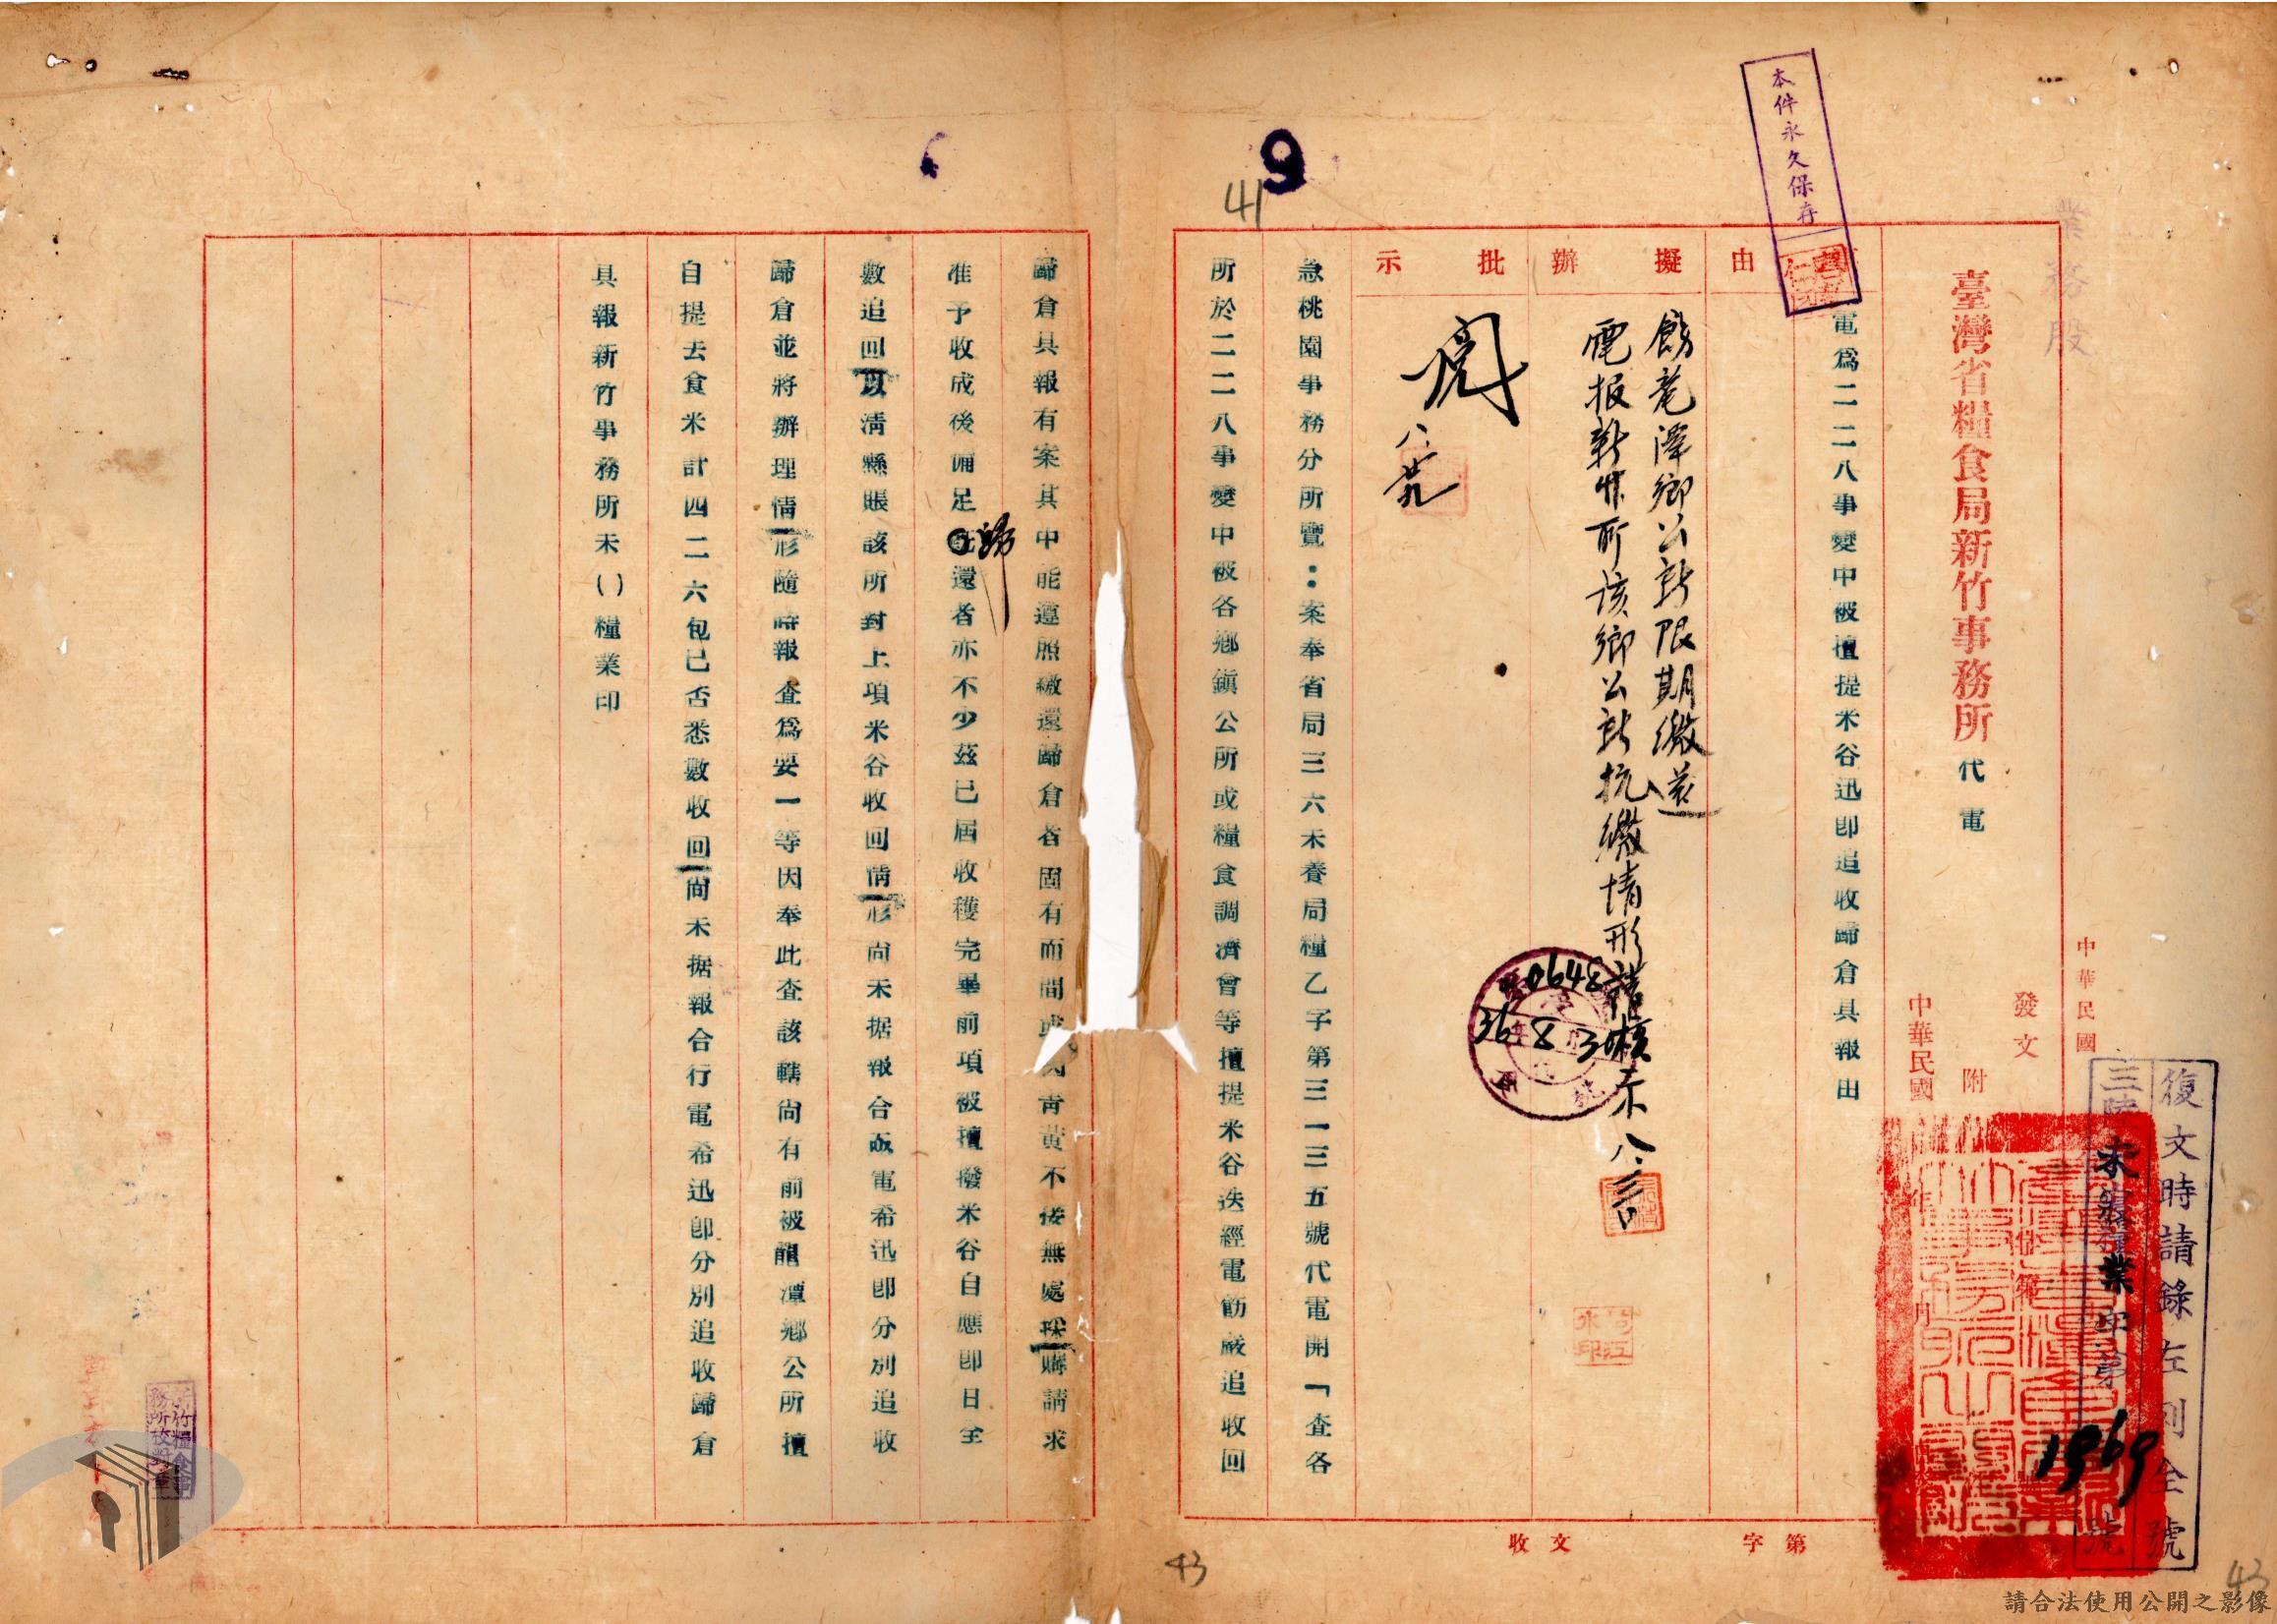 業務股
本件永久保存
中華民國
復文時請錄左列全號
三陸 未 糧業印第 1969 號
臺灣省糧食局新竹事務所代電
發文
附
中華民國
電爲二二八事變中被擅提米谷迅即追收歸倉具報由
由
擬辦
飭龍潭鄉公所限期繳還
電报新竹所该鄉公所抗繳情形請核示 八.三〇
批示
閱 八.卅
0648
36 8 30
急桃園事務分所覽:案奉省局三六未養局糧乙字第三一三五號代電開「查各
所於二二八事變中被各鄉鎮公所或糧食調濟會等擅提米谷迭經電飭嚴追收回
收文
字第
9
41
歸倉具報有案其中能遵照繳還歸倉者固有而間或 青黃不接無處採購請求
准予收成後備足歸還者亦不少茲已屆收穫完畢前項被擅撥米谷自應即日全
數追回以清縣賬該所對上項米谷收回情形尚未据報合亟電希迅即分別追收
歸倉並將辦理情形隨時報查爲要一等因奉此查該轄尚有前被龍潭鄉公所擅
自提去食米計四二六包已否悉數收回尚未据報合行電希迅即分別追收歸倉
具報新竹事務所未()糧業印
新竹糧食事務所校對章
43
43
請合法使用公開之影像